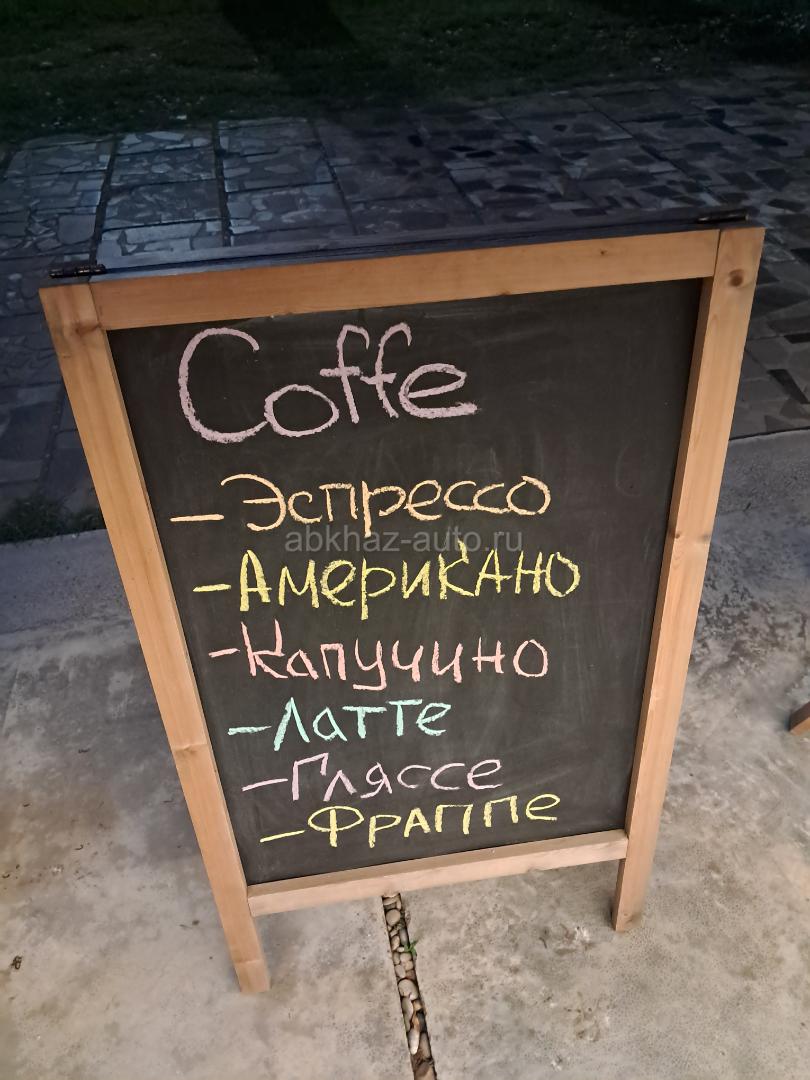 Coffe
– Эспрессо
abkhaz-auto.ru
– Американо
– Капучино
– Латте
– Гляссе
– Фраппе